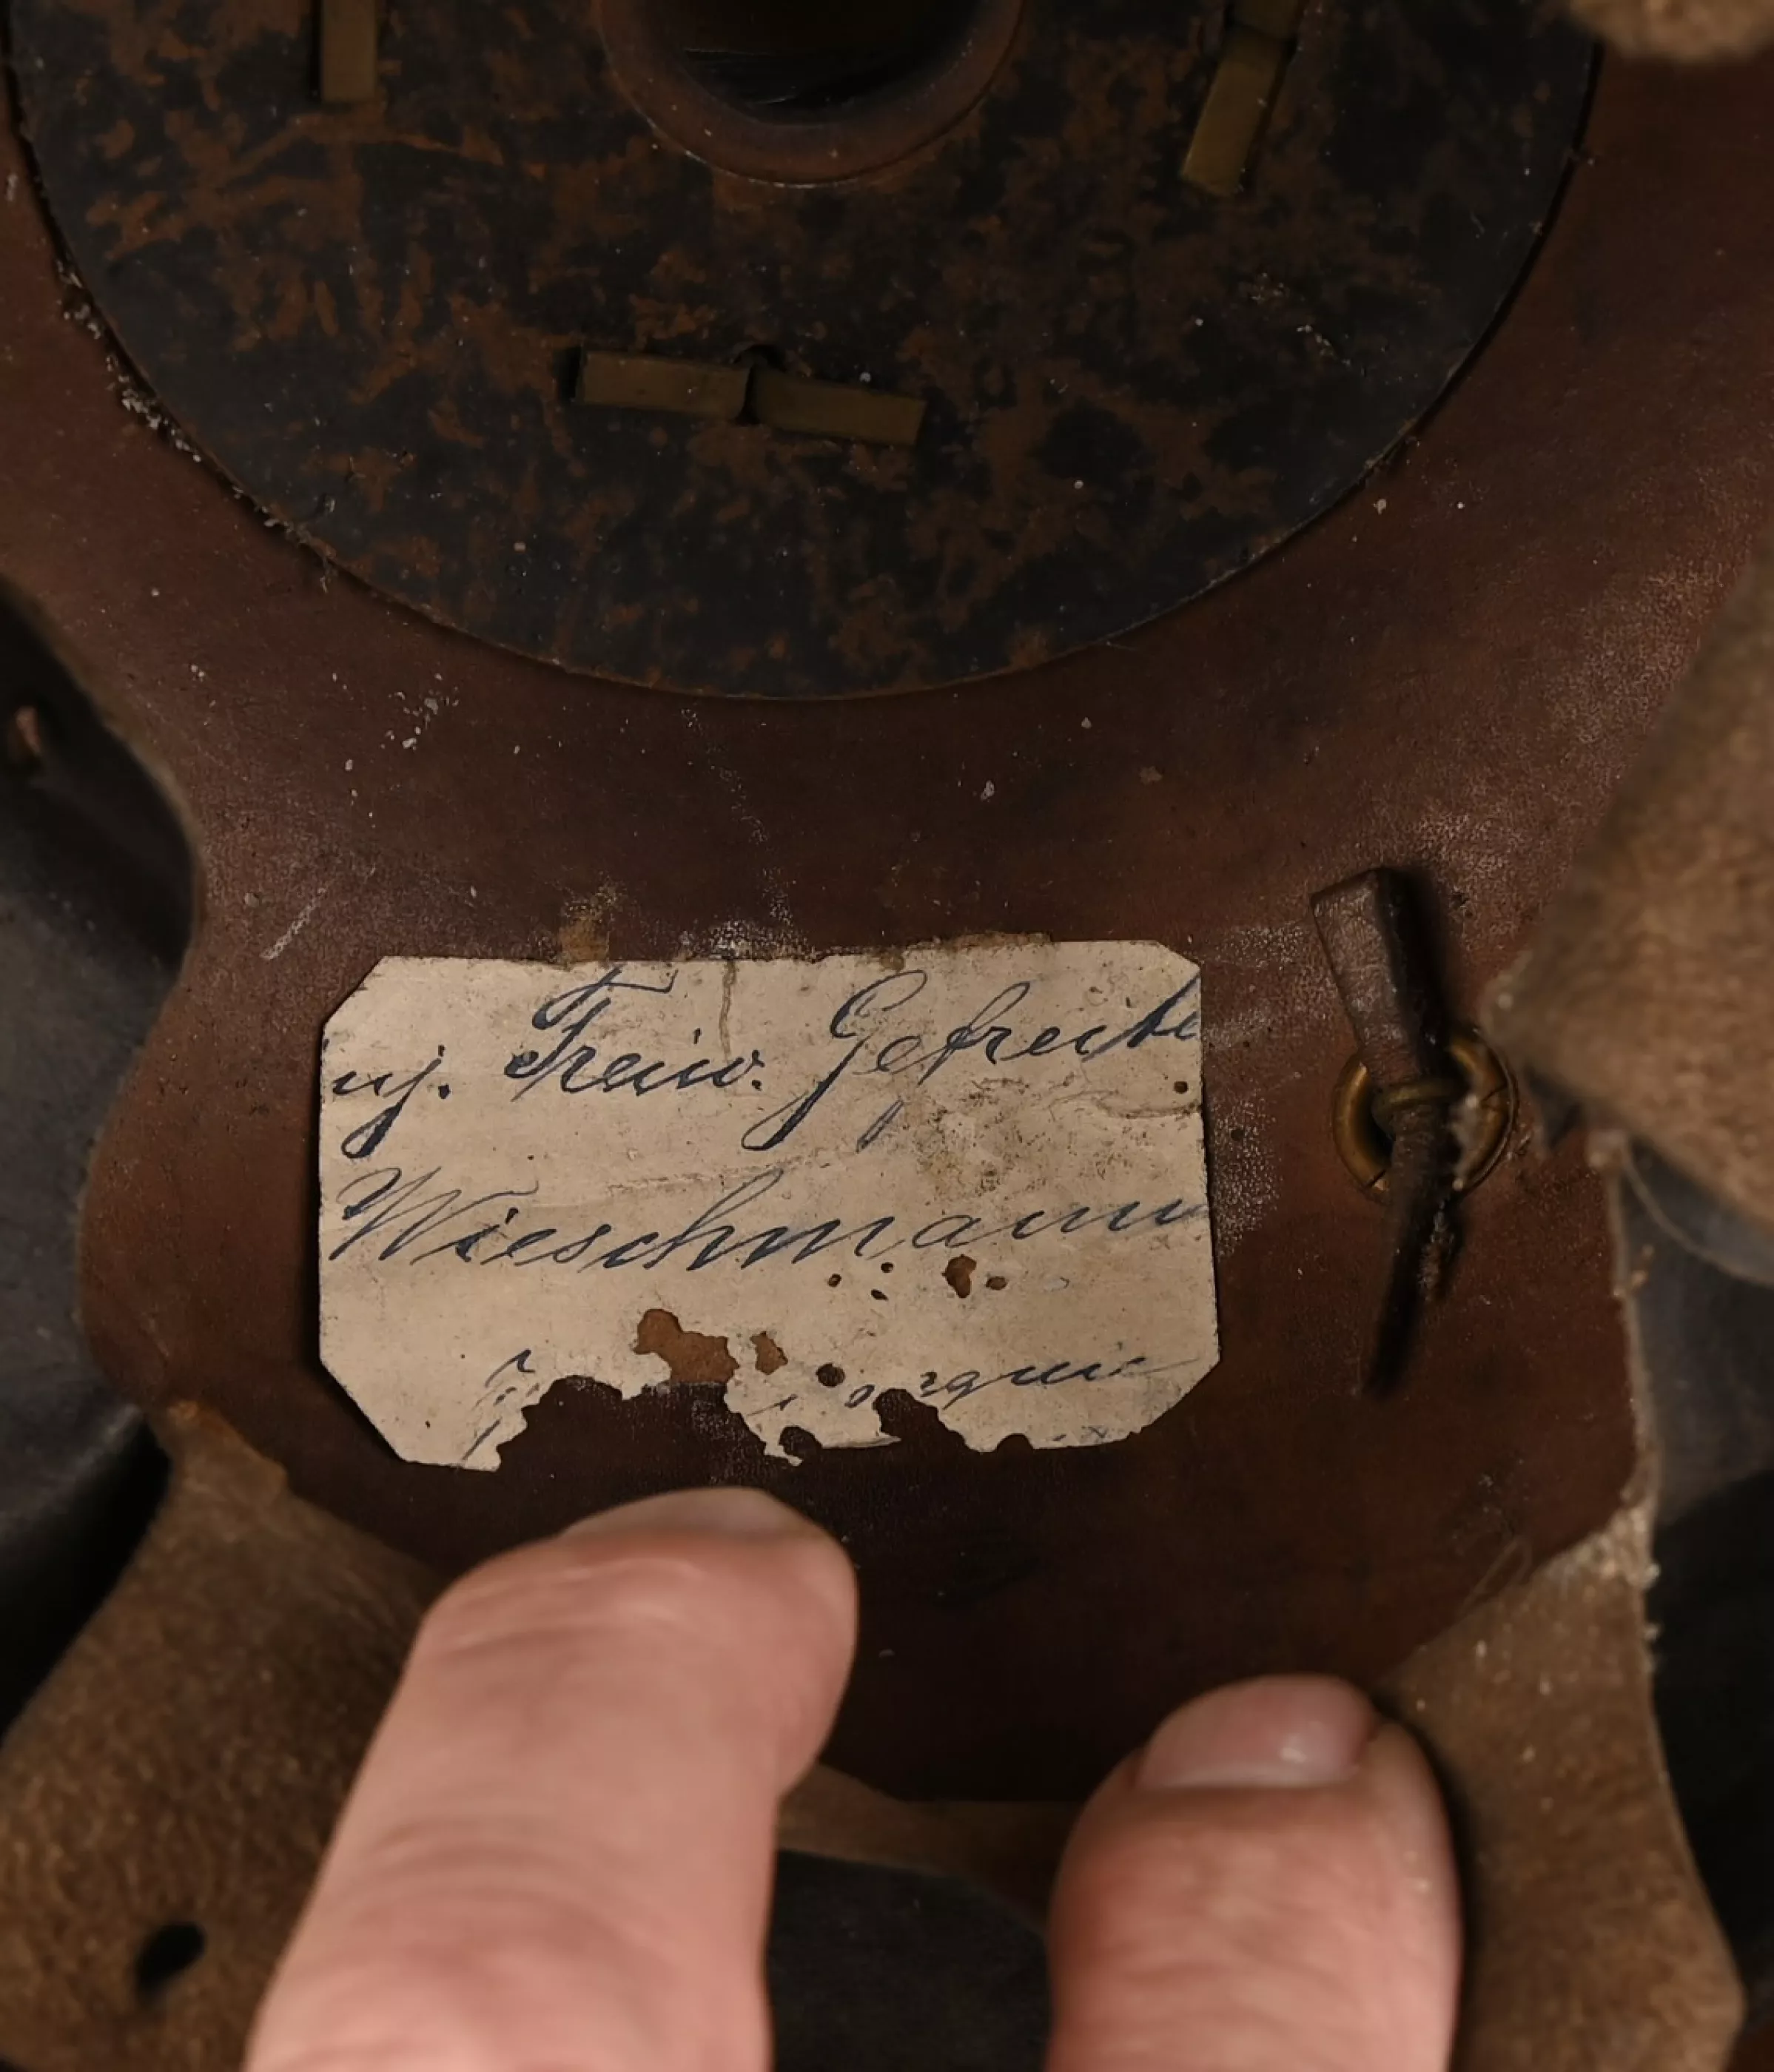 uj. Freiw. Gefreite
Wieschmann